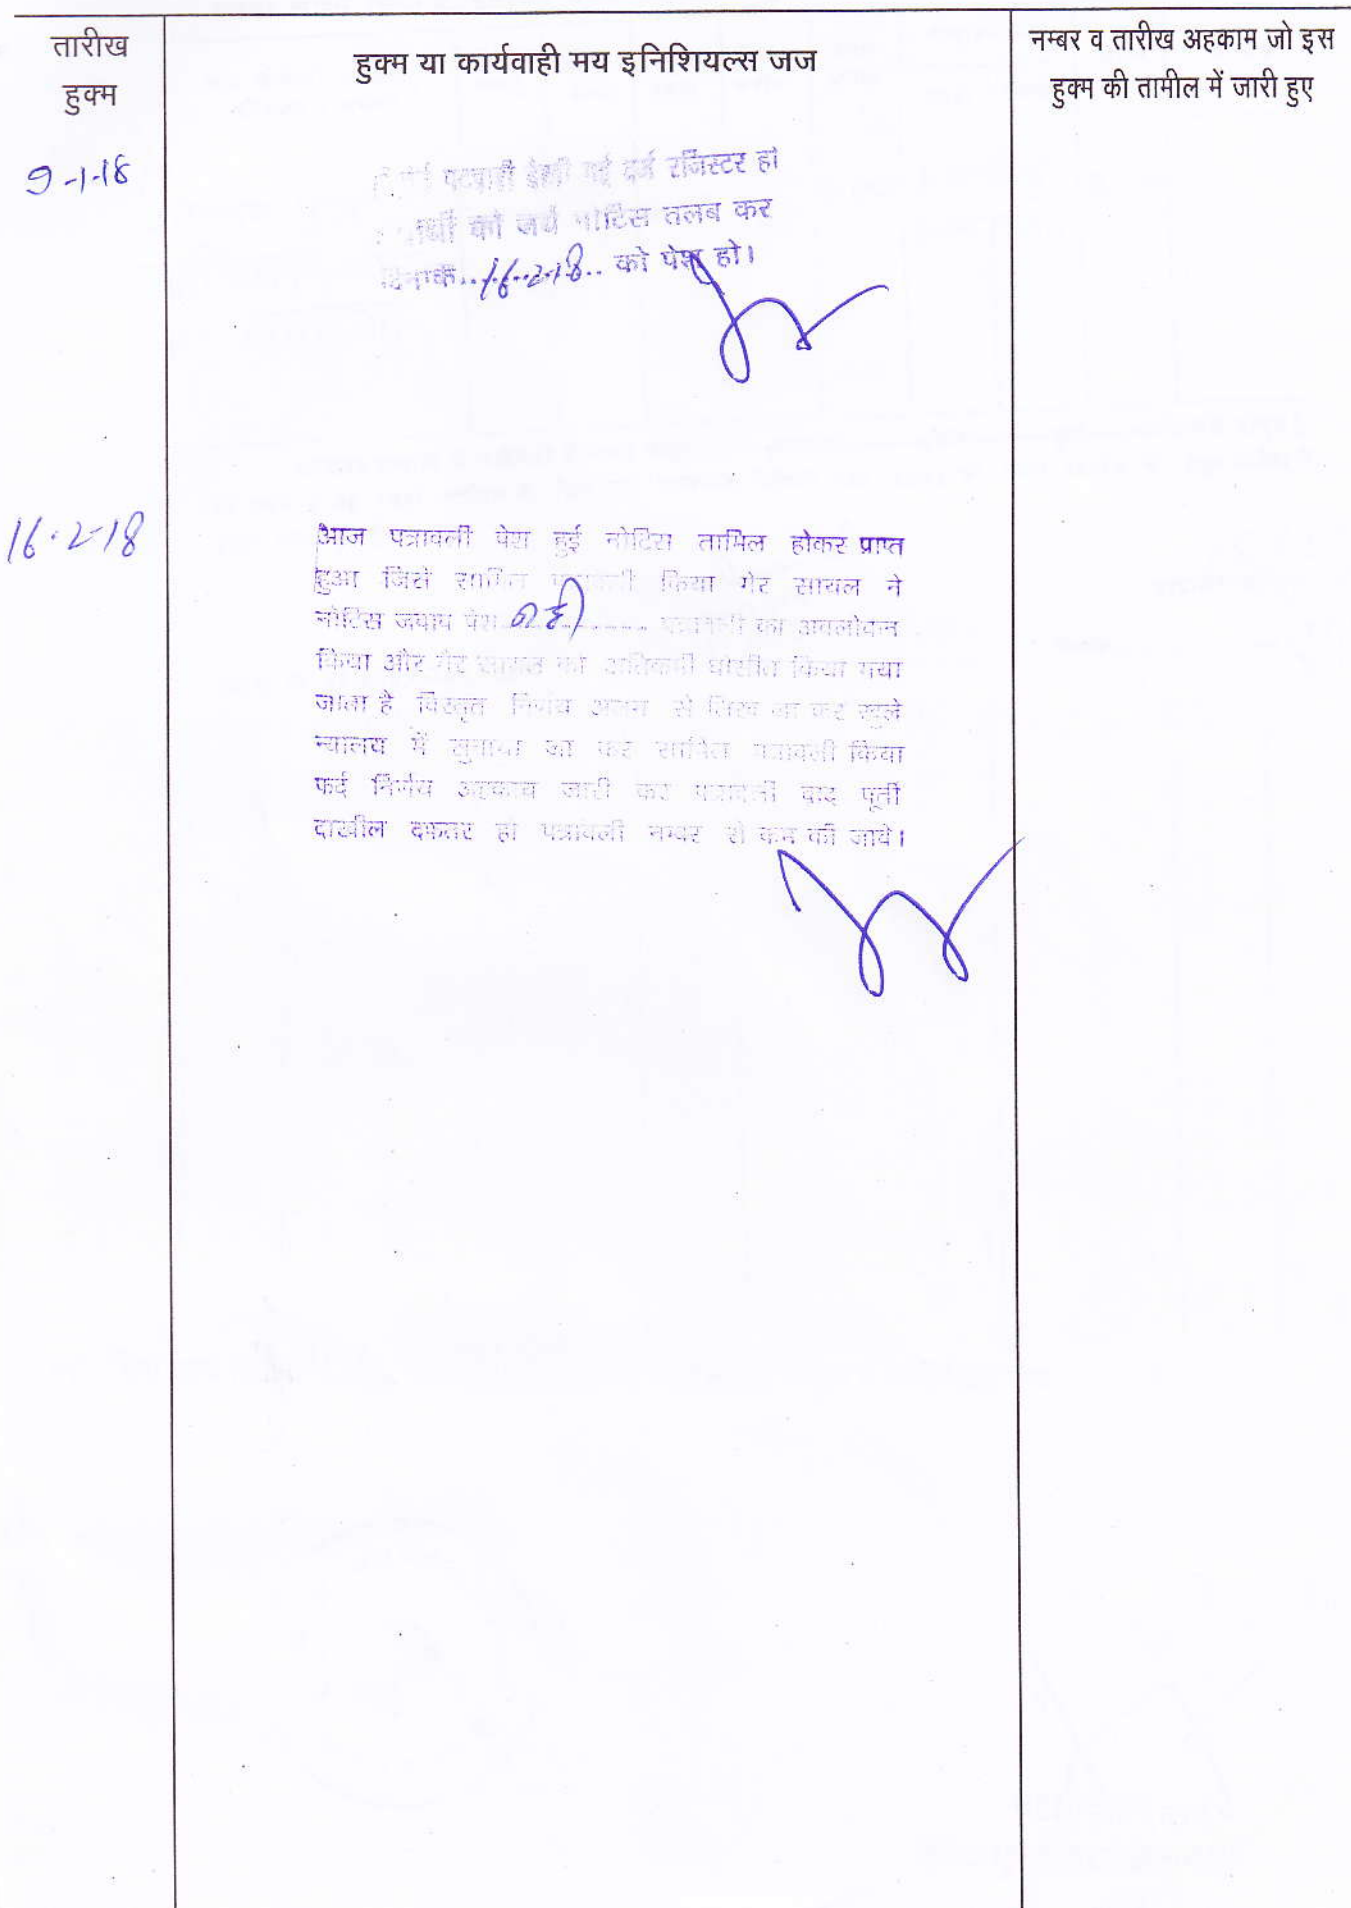 तारीख
हुक्म
हुक्म या कार्यवाही मय इनिशियल्स जज
नम्बर व तारीख अहकाम जो इस
हुक्म की तामील में जारी हुए
9-1-18
पटवारी देखी गई दर्ज रजिस्टर हो
को जर्ये नोटिस तलब कर
दिनांक..16-2-18.. को पेश हो।
16-2-18
आज पत्रावली पेश हुई नोटिस तामिल होकर प्राप्त
हुआ जिसे शामिल पत्रावली किया गेर सायल ने
नोटिस जवाब पेश नही पत्रावली का अवलोकन
किया और गेर सायल को अतिकमी घोसीत किया गया
जाता है विस्तृत निर्णय अलग से लिख जा कर खुले
न्यालय में सुनाया जा कर शामिल पत्रावली किया
फर्द निर्णय अहकाम जारी कर पत्रावली बाद पूर्ती
दाखील दफतर हो पत्रावली नम्बर से कम की जावे।